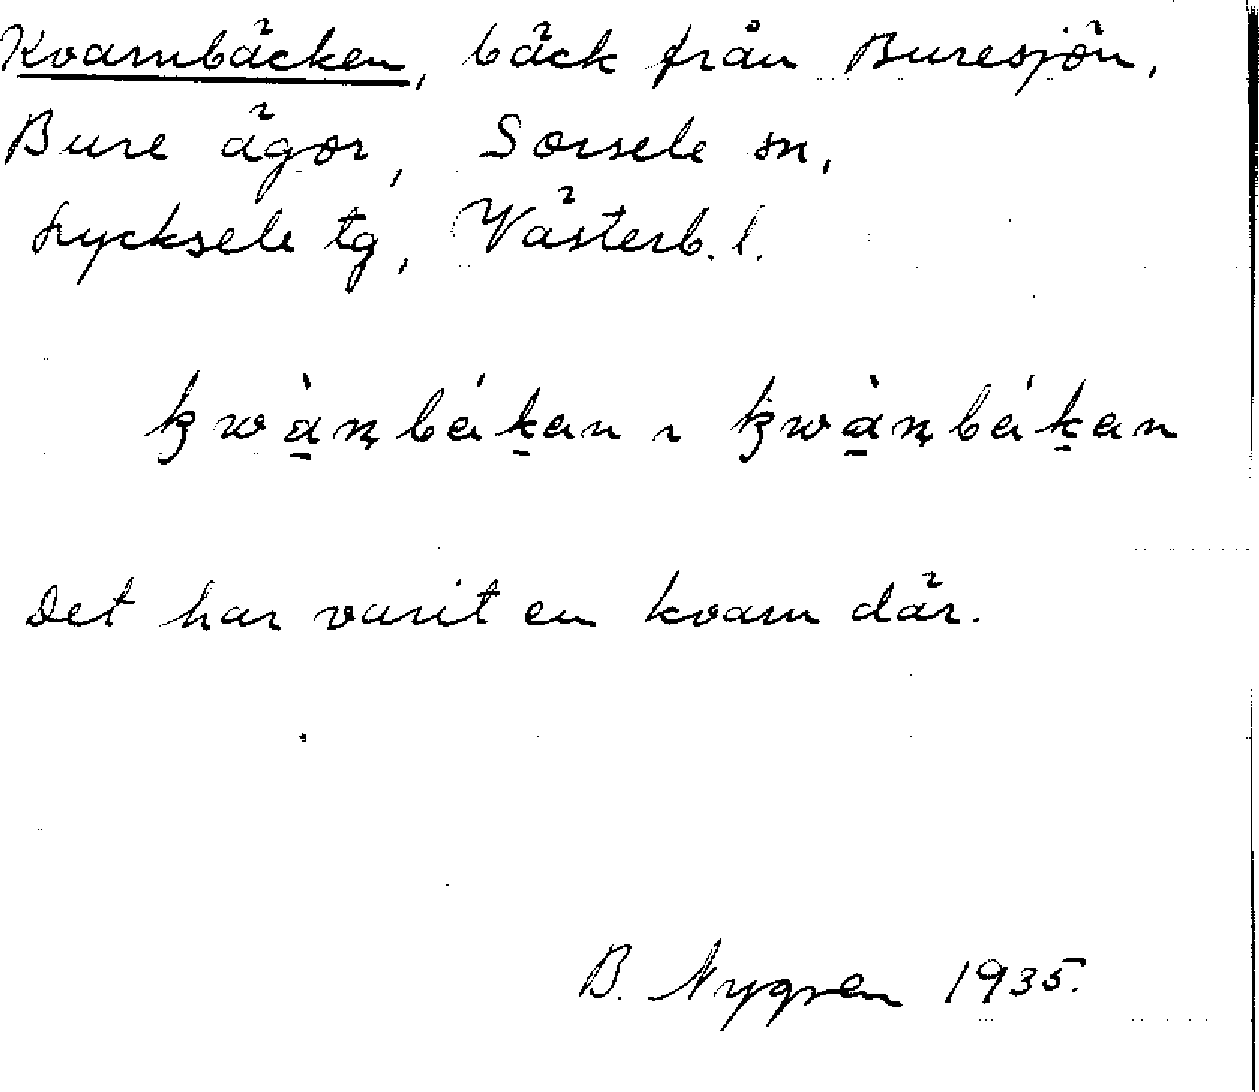 Kvarnbäcken, bäck från Buresjön,
Bure ägor, Sorsele sn,
Lycksele tg, Västerb. l.
kwàn̥béḵan ~ kwàn̥béḵan
Det har varit en kvarn där.
B. Nygren 1935.